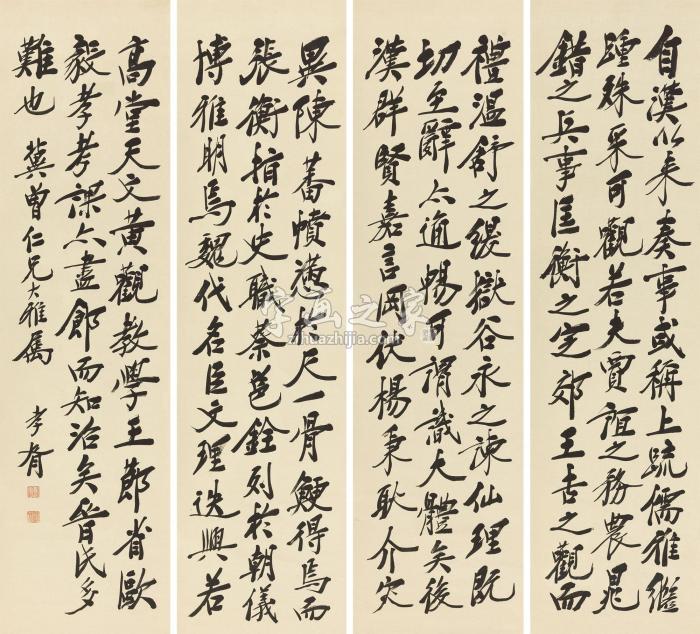 自漢以來奏事或稱上疏儒雅繼
踵殊采可觀若夫賈誼之務農晁
錯之兵事匡衡之定郊王吉之觀而
禮溫舒之緩獄谷永之諫仙理既
切至辭亦通暢可謂識大體矣後
漢群賢嘉言罔伏楊秉耿介灾
異陳蕃憤懣於尺一骨鯁得焉而
張衡指於史職蔡邕銓列於朝儀
博雅明焉魏代名臣文理迭興若
高堂天文黃觀教學王省
毅考課亦盡節而知治矣晉氏多
難也 冀曾仁兄大雅屬
孝胥
字画之家
zihuazhijia.com